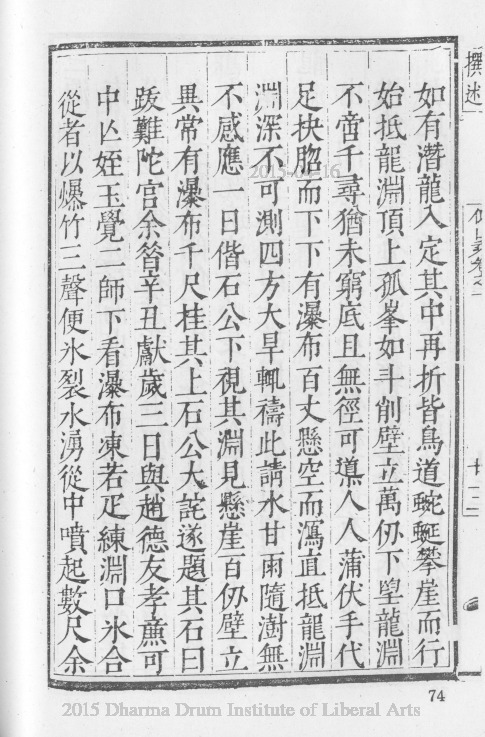 如有潛龍入定其中再折皆鳥道蜿蜒攀崖而行
始抵龍淵頂上孤峯如斗削壁立萬仞下望龍淵
不啻千尋猶未窮底且無徑可導人人蒲伏手代
足抉䐡而下下有瀑布百丈懸空而瀉直抵龍淵
淵深不可測四方大旱輒禱此請水甘雨隨澍無
不感應一日偕石公下視其淵見懸崖百仞壁立
異常有瀑布千尺挂其上石公大詫遂題其石曰
跋難陀宮余昝辛丑獻歲三日與趙德友孝廉可
中亾姪玉覺二師下看瀑布凍若疋練淵口氷合
從者以爆竹三聲便氷裂水湧從中噴起數尺余
撰述
74
2015-04-16
2015 Dharma Drum Institute of Liberal Arts